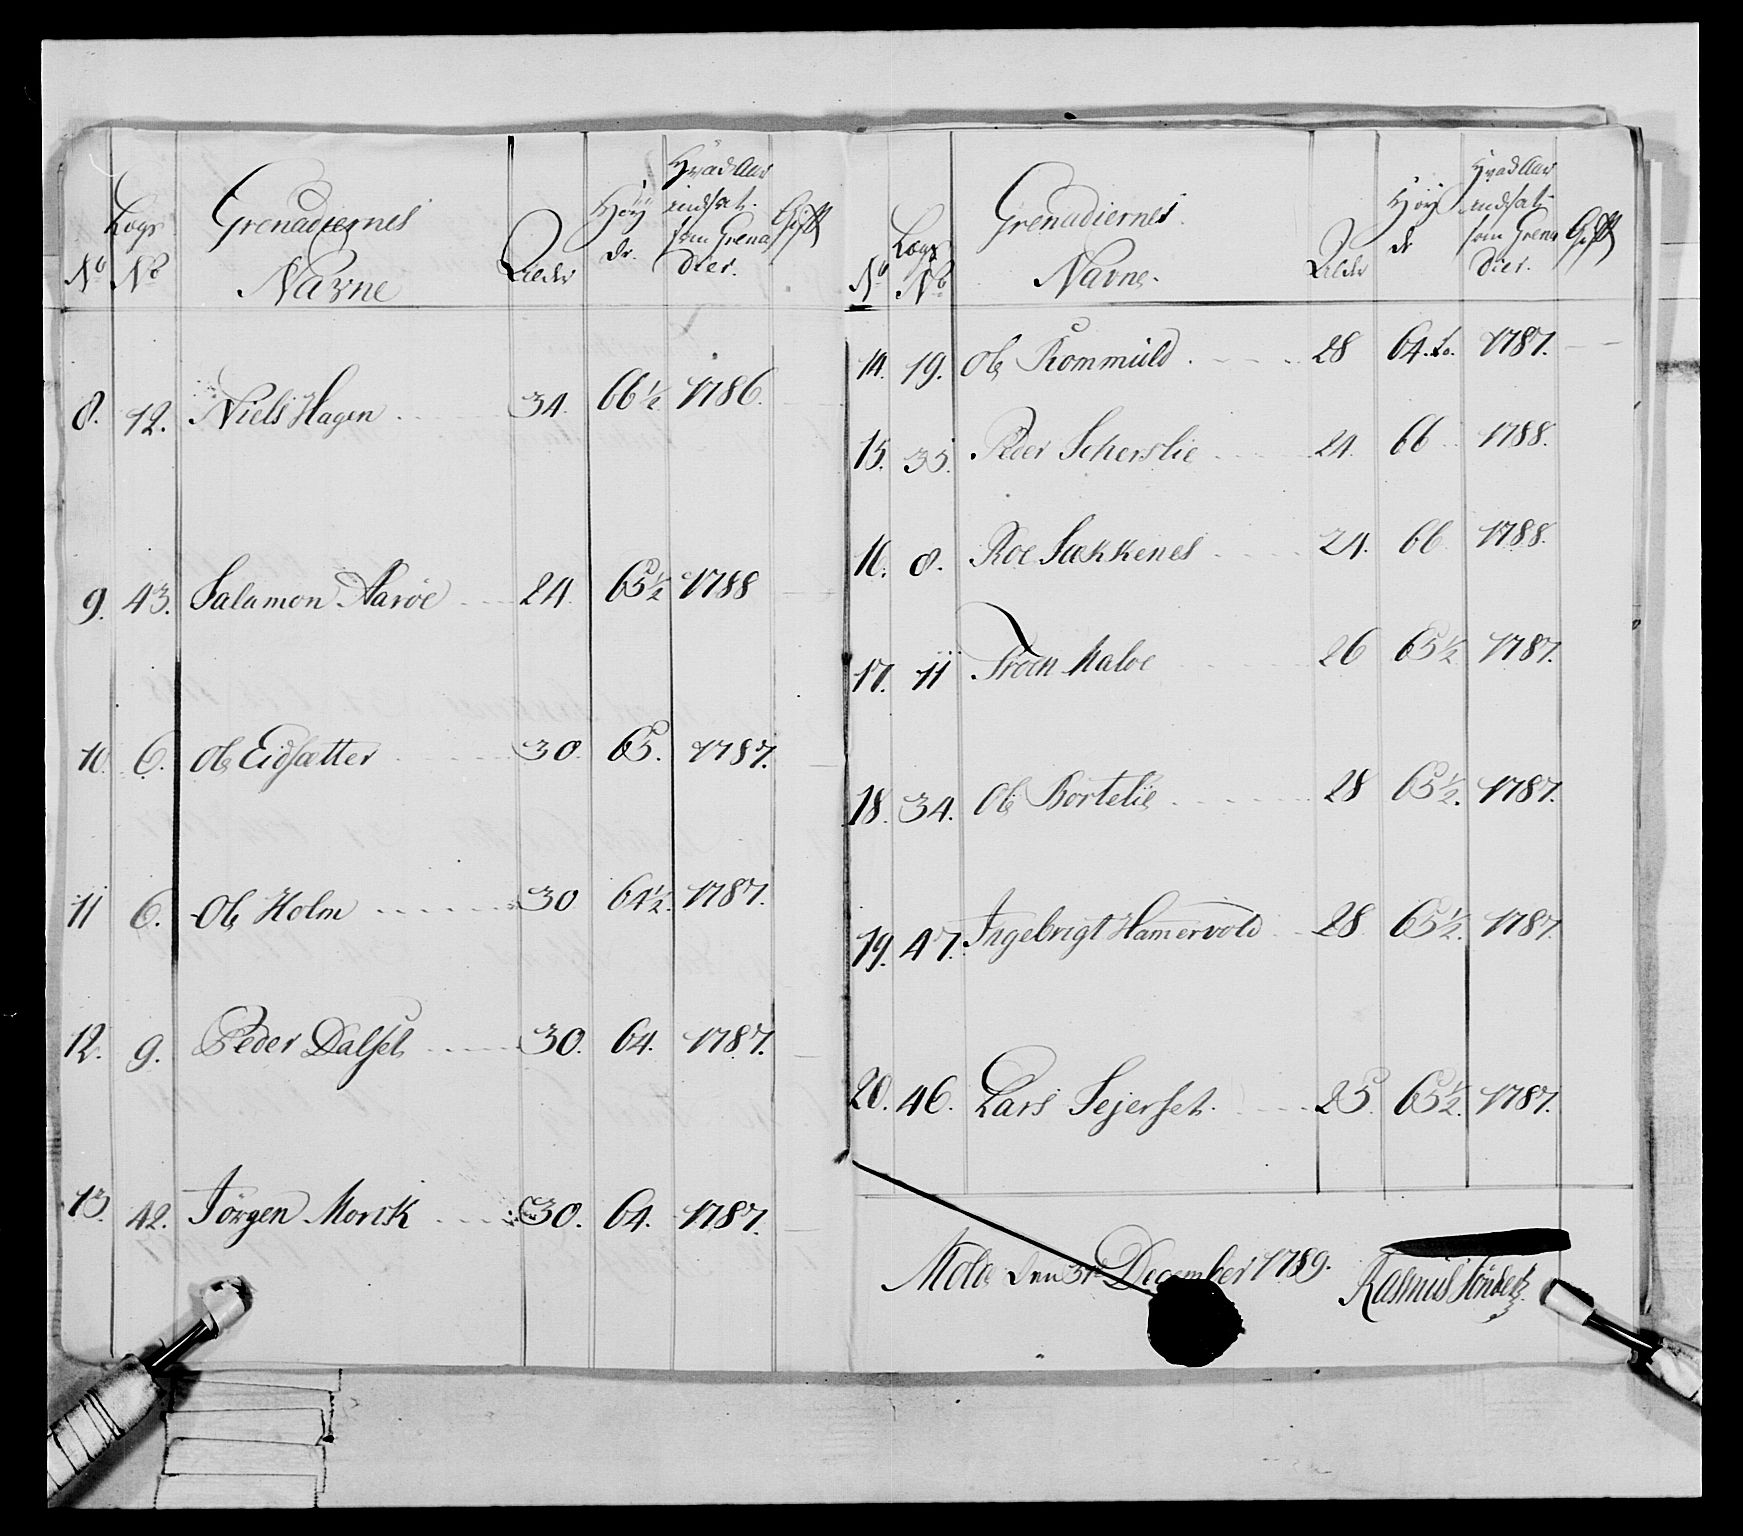 No
Lægs No
Grenadiernes Navne
Alder
Höyde.
Hvad Aar indsat som Grenadier.
Gift
8. 12. Niels Hagen 34. 66 1/2 1786.
9. 43. Salamon Aaröe 24 65 1/2 1788
10. 6. Ole Eidsætter 30. 65. 1787.
11 6. Ole Holm 30 64 1/2. 1787.
12. 9. Peder Dalset 30. 64. 1787.
13. 42. Jörgen Morsk 30. 64. 1787.
No
Lægs No
Grenadiernes Navne.
Alder
Höyde
Hvad Aar indsat som Grenadier.
Gift
14. 19. Ole Rommüld 28 64. 1787.
15. 35. Peder Scherslie 24. 66 1788.
16. 8. Roe Sækkenes 24. 66 1788.
17. 11 Troen Maloe 26 65 1/2 1787.
18. 34. Ole Bortelie 28 65 1/2. 1787.
19. 47. Ingebrigt Hamervold 28. 65 1/2. 1787.
20. 46. Lars Sejerset. 25. 65 1/2. 1787.
Molde den 31te December 1789. Rasmus